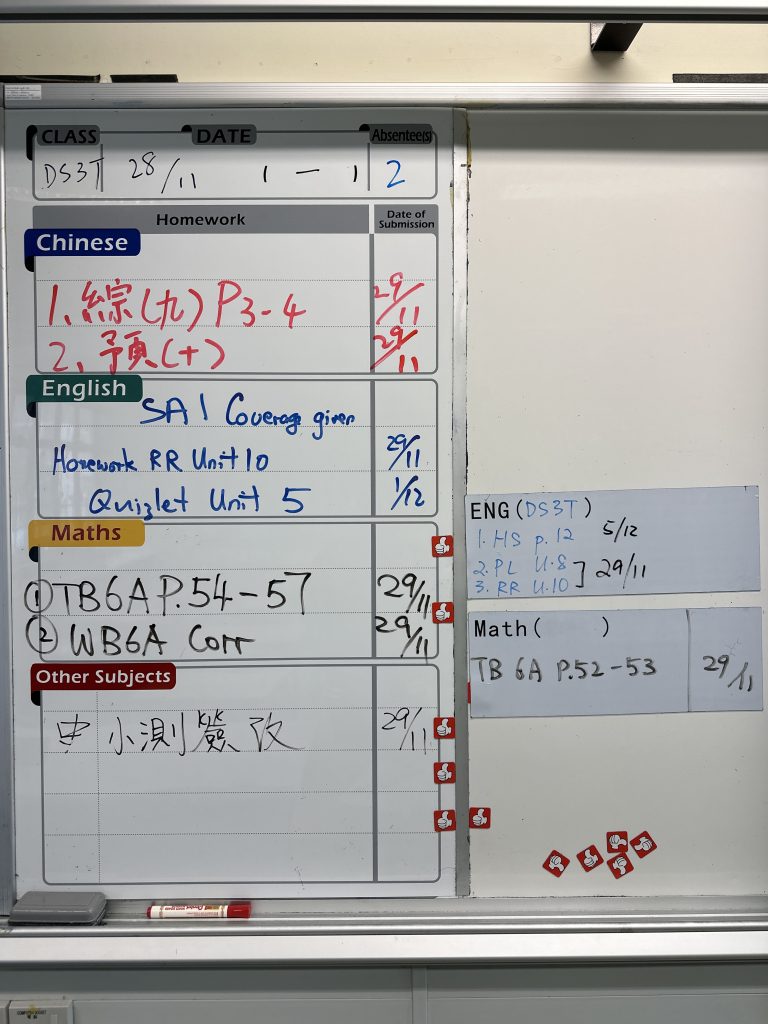 CLASS DATE Absentee(s)
DS3T 28/11 1 — 1 2
Homework Date of Submission
Chinese
1. 綜(九) P3-4 29/11
2. 預(十) 29/11
English
SA1 Coverage given
Homework RR Unit 10 29/11
Quizlet Unit 5 1/12
Maths
① TB6A P.54-57 29/11
② WB6A Corr 29/11
Other Subjects
小測簽改 29/11
ENG (DS3T)
1. HS p. 12 5/12
2. PL U.8
3. RR U.10 ] 29/11
Math ( )
TB 6A P.52-53 29/11